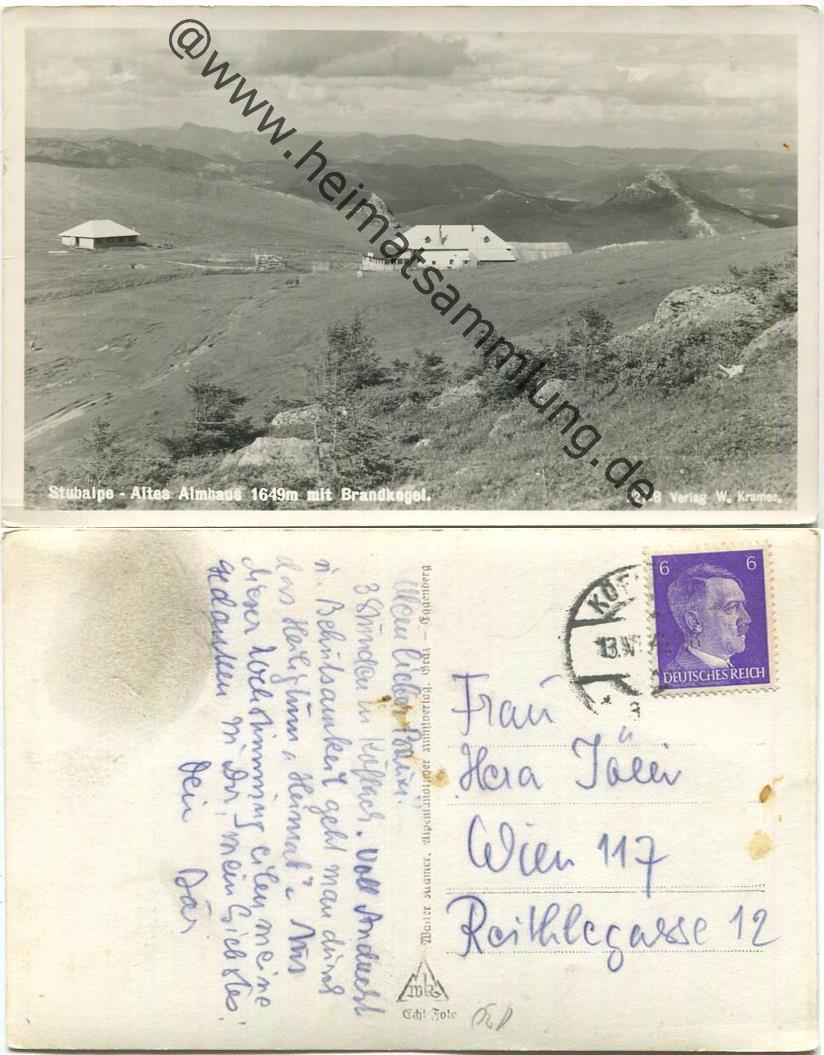 @www.heimatsammlung.de
Stubalpe - Altes Almhaus 1649m mit Brandkogel.
Verlag W. Kramer.
Mein lieber
3 Stunden in Köflach. Voll Andacht
u. Behutsamkeit geht man durch
das Heiligtum „Heimat“. Aus
dieser Weihestimmung eilen meine
Gedanken zu Dir, mein Liebstes!
Dein Bär
Alpenländischer Kunstverlag, Graz -
Echt Foto
6 6
DEUTSCHES REICH
KÖF
13.
a
Frau
Hera
Wien 117
Reithlegasse 12